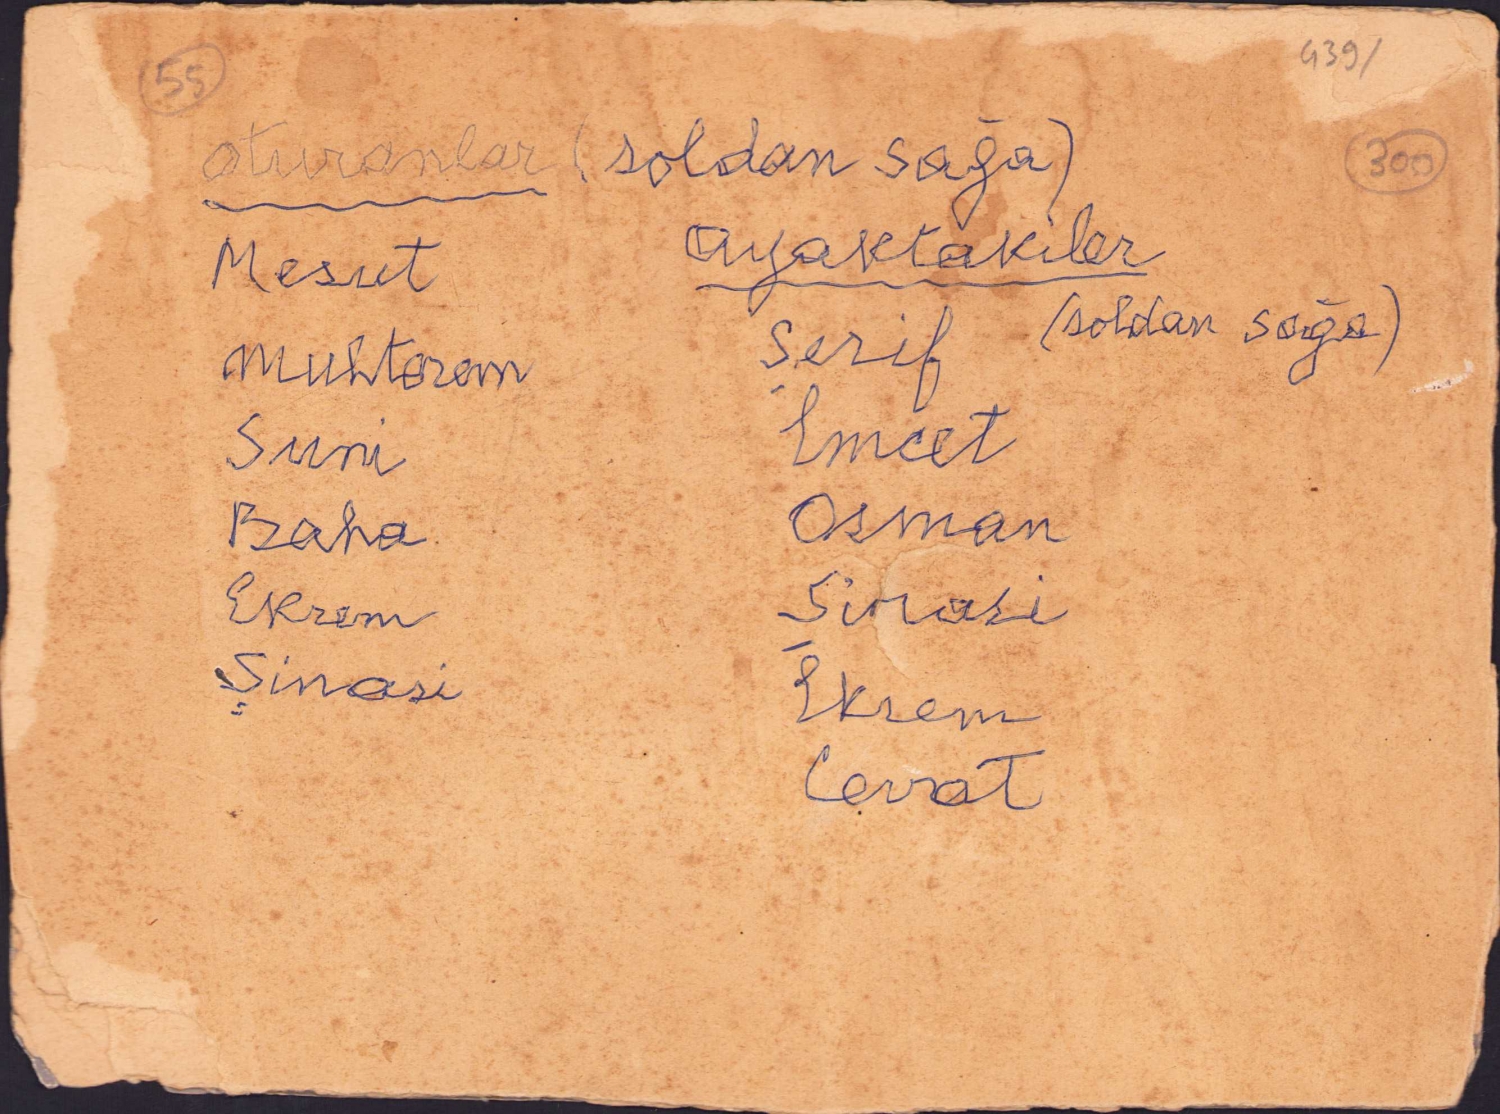 55
439/
300
oturanlar (soldan sağa)
Mesut
Muhterem
Suni
Baha
Ekrem
Şinasi
ayaktakiler
(soldan sağa)
Şerif
İmcet
Osman
Şinasi
Ekrem
Cevat